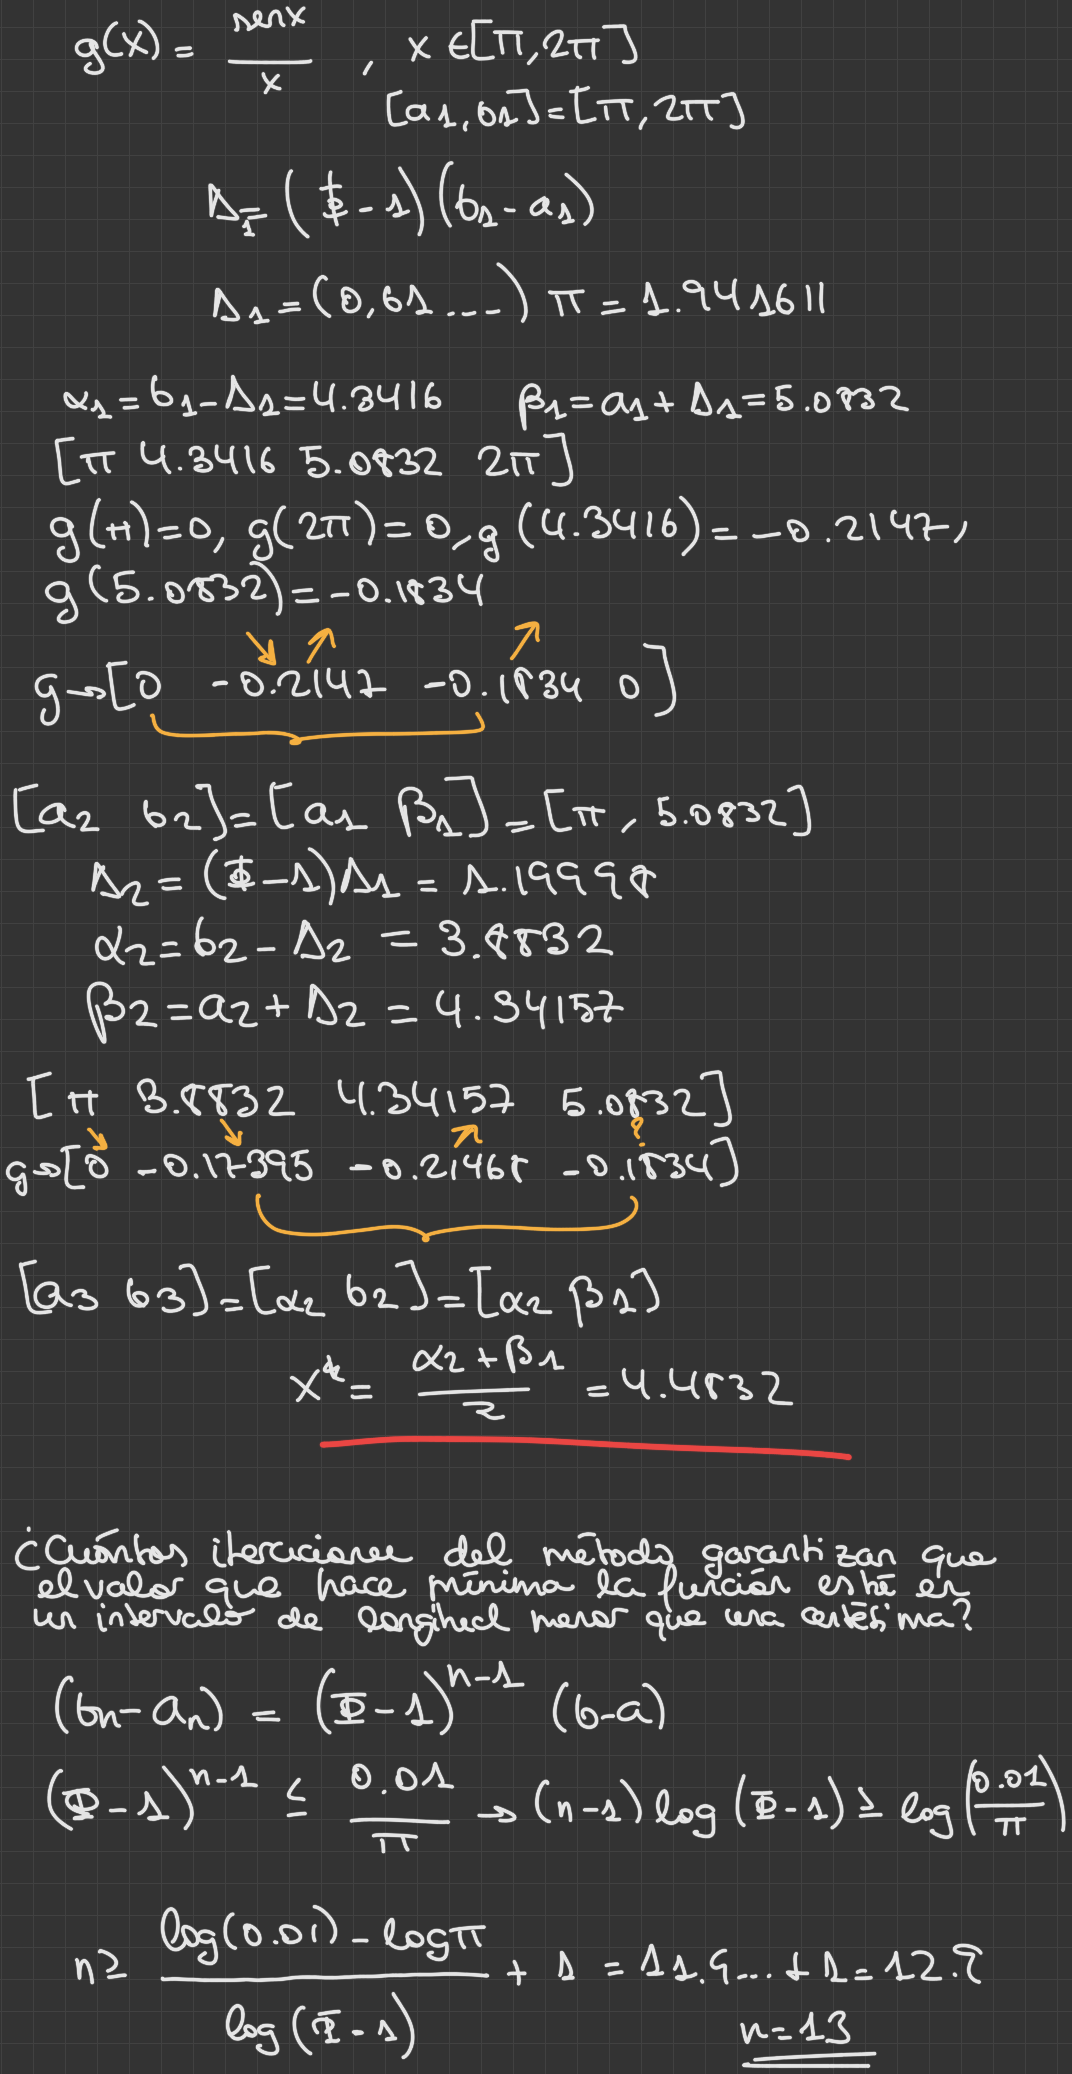 g(x) = senx / x , x ∈ [π, 2π]
[a1, b1] = [π, 2π]
Δ1 = (Φ - 1)(b1 - a1)
Δ1 = (0,61...) π = 1.941611
α1 = b1 - Δ1 = 4.3416 β1 = a1 + Δ1 = 5.0832
[π 4.3416 5.0832 2π]
g(π) = 0, g(2π) = 0, g(4.3416) = -0.2147,
g(5.0832) = -0.1834
g→[0 -0.2147 -0.1834 0]
[a2 b2] = [a1 β1] = [π, 5.0832]
Δ2 = (Φ - 1)Δ1 = 1.19998
α2 = b2 - Δ2 = 3.8832
β2 = a2 + Δ2 = 4.34157
[π 3.8832 4.34157 5.0832]
?
g→[0 -0.17395 -0.21468 -0.1834]
[a3 b3] = [α2 b2] = [α2 β1]
x* = (α2 + β1) / 2 = 4.4832
¿Cuántas iteraciones del método garantizan que
el valor que hace mínima la función esté en
un intervalo de longitud menor que una centésima?
(bn - an) = (Φ - 1)^(n-1) (b-a)
(Φ - 1)^(n-1) ≤ 0.01 / π → (n-1) log (Φ - 1) ≥ log (0.01 / π)
n ≥ (log(0.01) - log π) / log (Φ - 1) + 1 = 11.9... + 1 = 12.9
n = 13